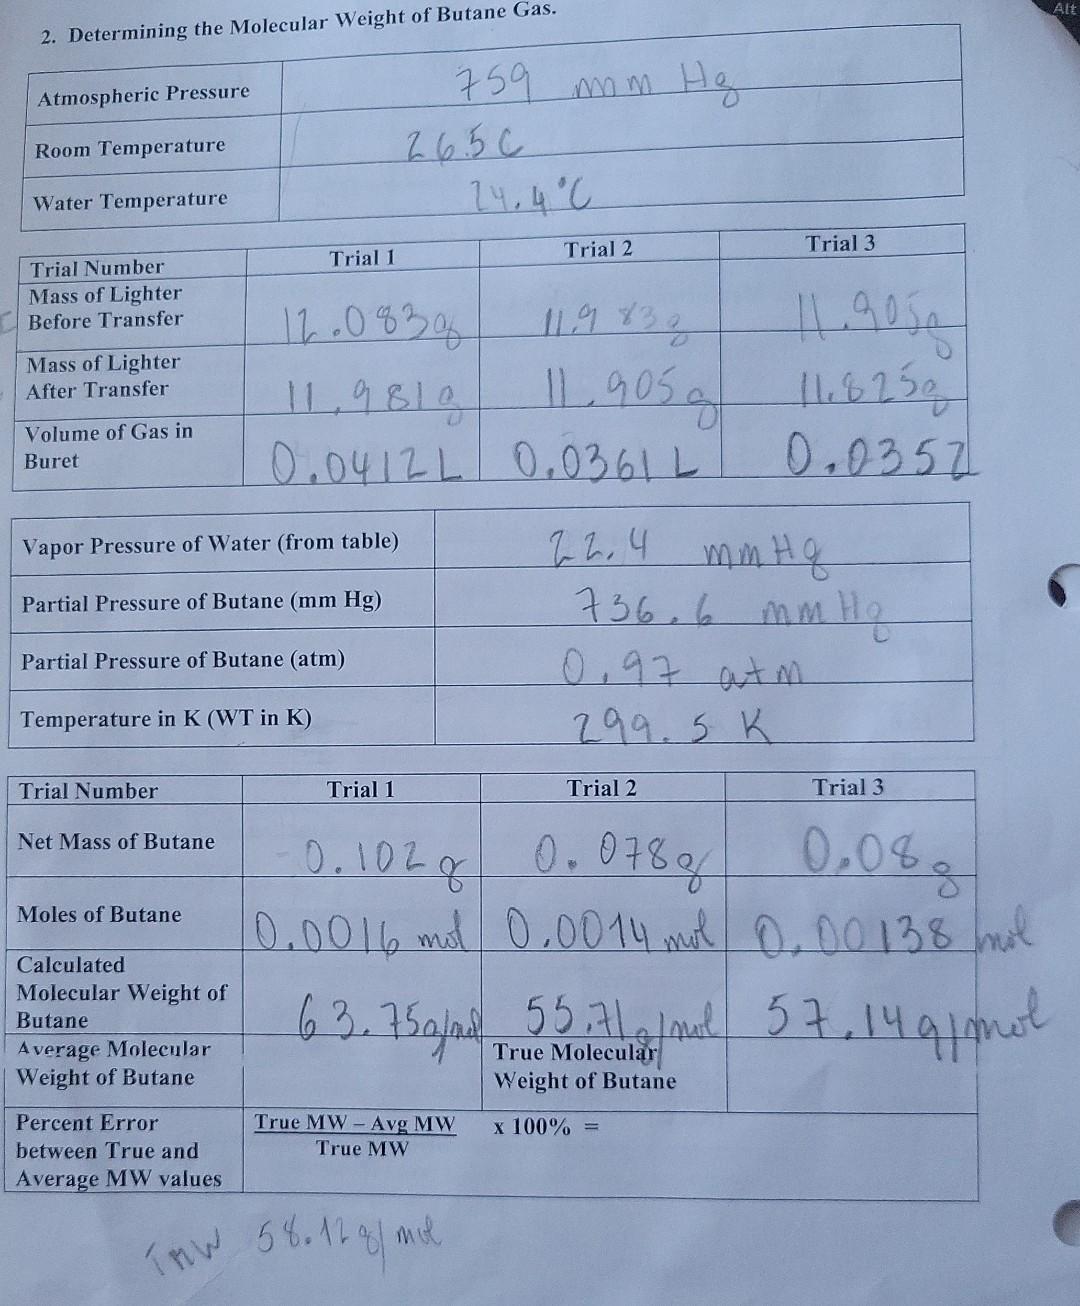 Alt
2. Determining the Molecular Weight of Butane Gas.
Atmospheric Pressure 759 mm Hg
Room Temperature 26.5C
Water Temperature 24.4°C
Trial Number Trial 1 Trial 2 Trial 3
Mass of Lighter
Before Transfer 12.083g 11.983g 11.905g
Mass of Lighter
After Transfer 11.981g 11.905g 11.825g
Volume of Gas in
Buret 0.0412L 0.0361L 0.0352
Vapor Pressure of Water (from table) 22.4 mmHg
Partial Pressure of Butane (mm Hg) 736.6 mmHg
Partial Pressure of Butane (atm) 0.97 atm
Temperature in K (WT in K) 299.5 K
Trial Number Trial 1 Trial 2 Trial 3
Net Mass of Butane 0.102g 0.078g 0.08g
Moles of Butane 0.0016 mol 0.0014 mol 0.00138 mol
Calculated
Molecular Weight of
Butane 63.75g/mol 55.71g/mol 57.14g/mol
Average Molecular
Weight of Butane
True Molecular
Weight of Butane
Percent Error
between True and
Average MW values
True MW – Avg MW x 100% =
True MW
TMW 58.12g/mol